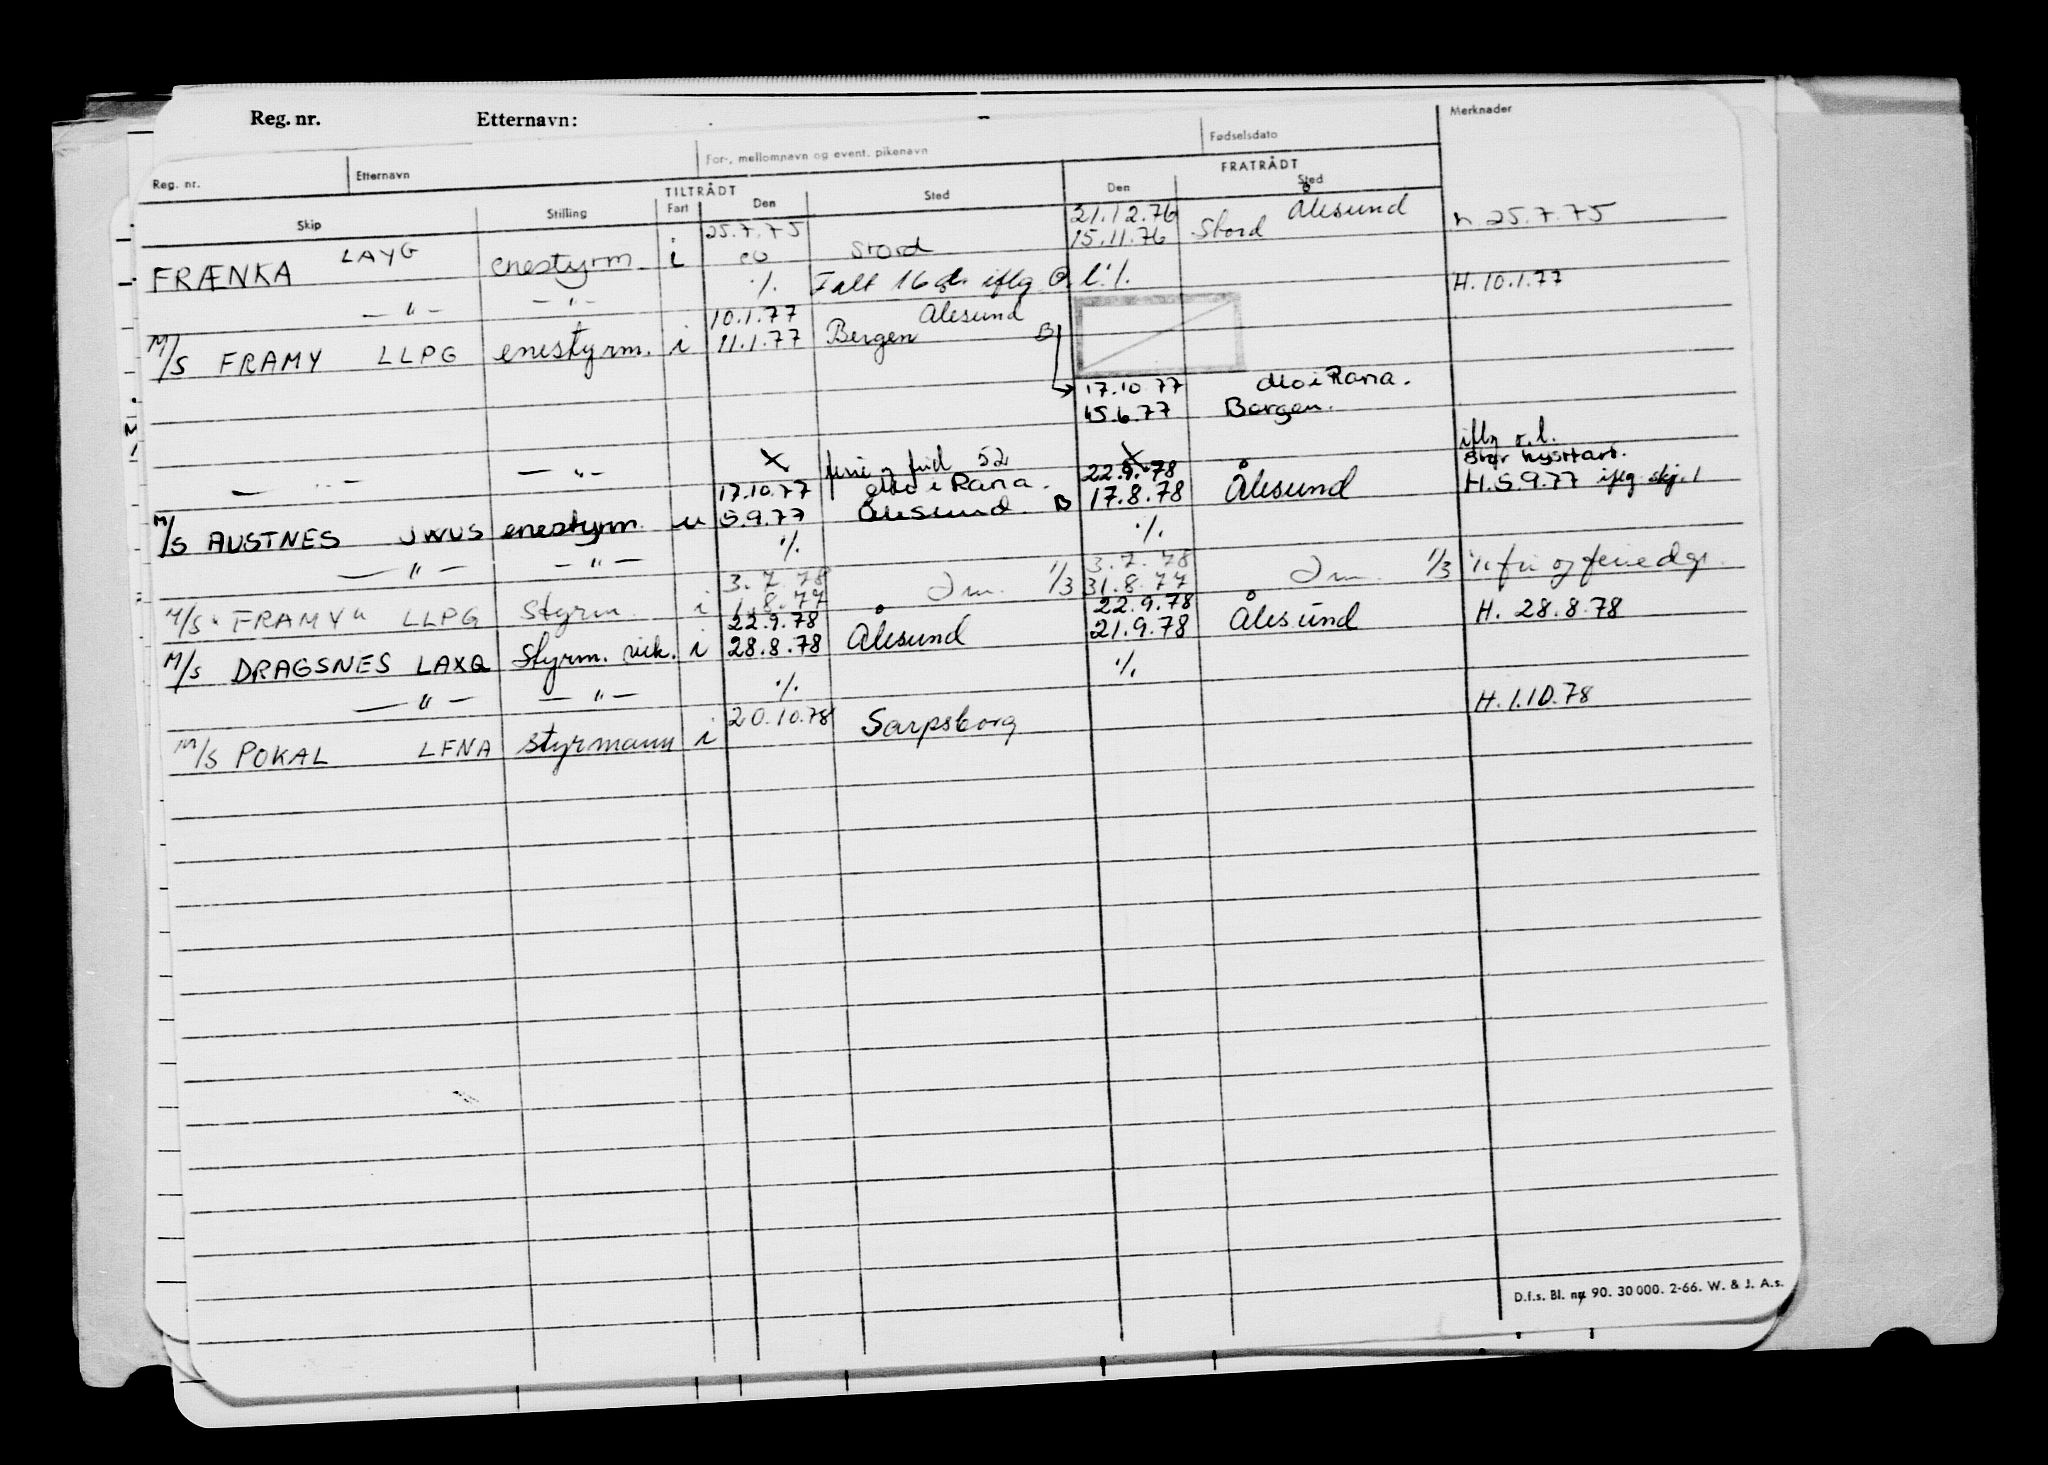 Reg. nr. Etternavn:
Reg. nr. Etternavn For-, mellomnavn og event. pikenavn Fødselsdato Merknader
TILTRÅDT FRATRÅDT
Skip Stilling Fart Den Sted Den Sted
25.7.75 21.12.76 Ålesund
FRÆNKA LAYG enestyrm i Stord 15.11.76 Stord h. 25.7.75
— " — — " — ./. Falt 16 d. iflg. ./.
10.1.77 Ålesund H. 10.1.77
M/S FRAMY LLPG enestyrm. i 11.1.77 Bergen B
17.10.77 Mo i Rana.
15.6.77 Bergen.
X ferie og frid 52 X iflg r.l.
— " — — " — 17.10.77 Mo i Rana. 22.9.78 stor kystfart.
M/S AUSTNES JWUS enestyrm. u 5.9.77 Ålesund. B 17.8.78 Ålesund H.5.9.77 iflg. skj. 1
— " — — " — ./. ./.
3.7.78 1/3 3.7.78 1/3 fri og feriedgr.
M/S "FRAMY" LLPG Styrm. i 1.8.77 31.8.77
22.9.78 22.9.78
M/S DRAGSNES LAXQ Styrm. vik. i 28.8.78 Ålesund 21.9.78 Ålesund H. 28.8.78
— " — — " — ./. ./.
M/S POKAL LFNA Styrmann i 20.10.78 Sarpsborg H. 1.10.78
D.f.s. Bl. nr 90. 30 000. 2-66. W. & J. A.s.